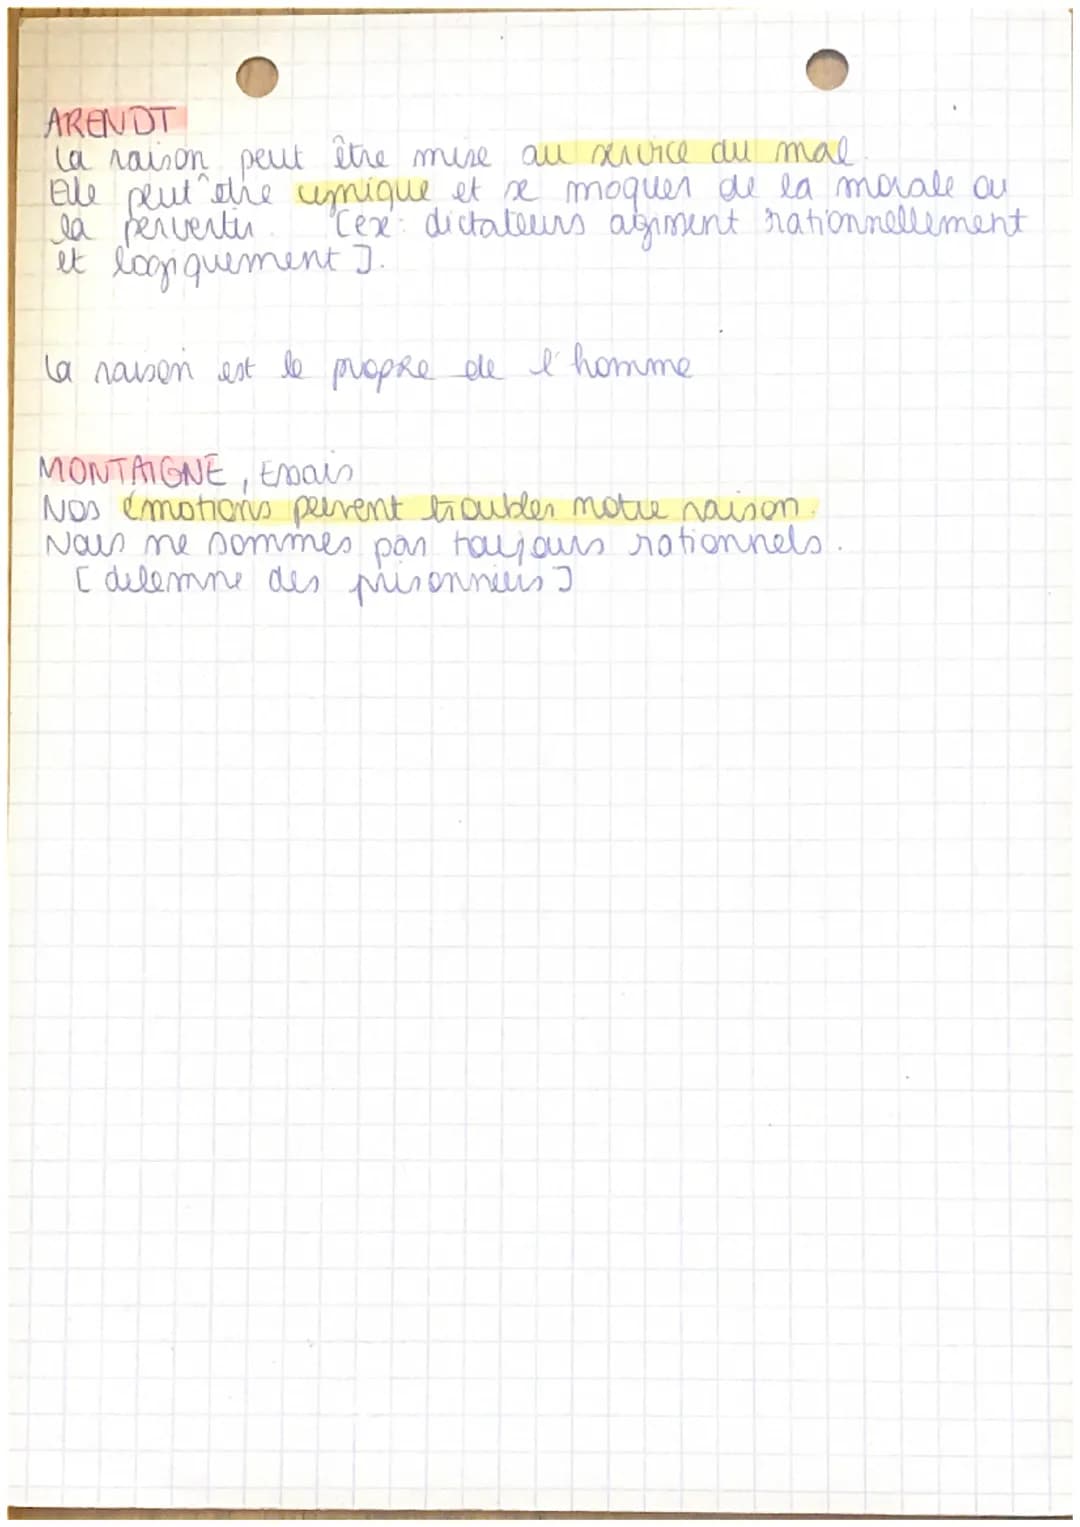 ARENDT
La raison peut être mise au service du mal.
Elle peut être cynique et se moquer de la morale ou
la pervertir. [ex: dictateurs agissent rationnellement
et logiquement].
La raison est le propre de l'homme
MONTAIGNE, Essais
Nos émotions peuvent troubler notre raison.
Nous ne sommes pas toujours rationnels.
[dilemne des prisonniers]